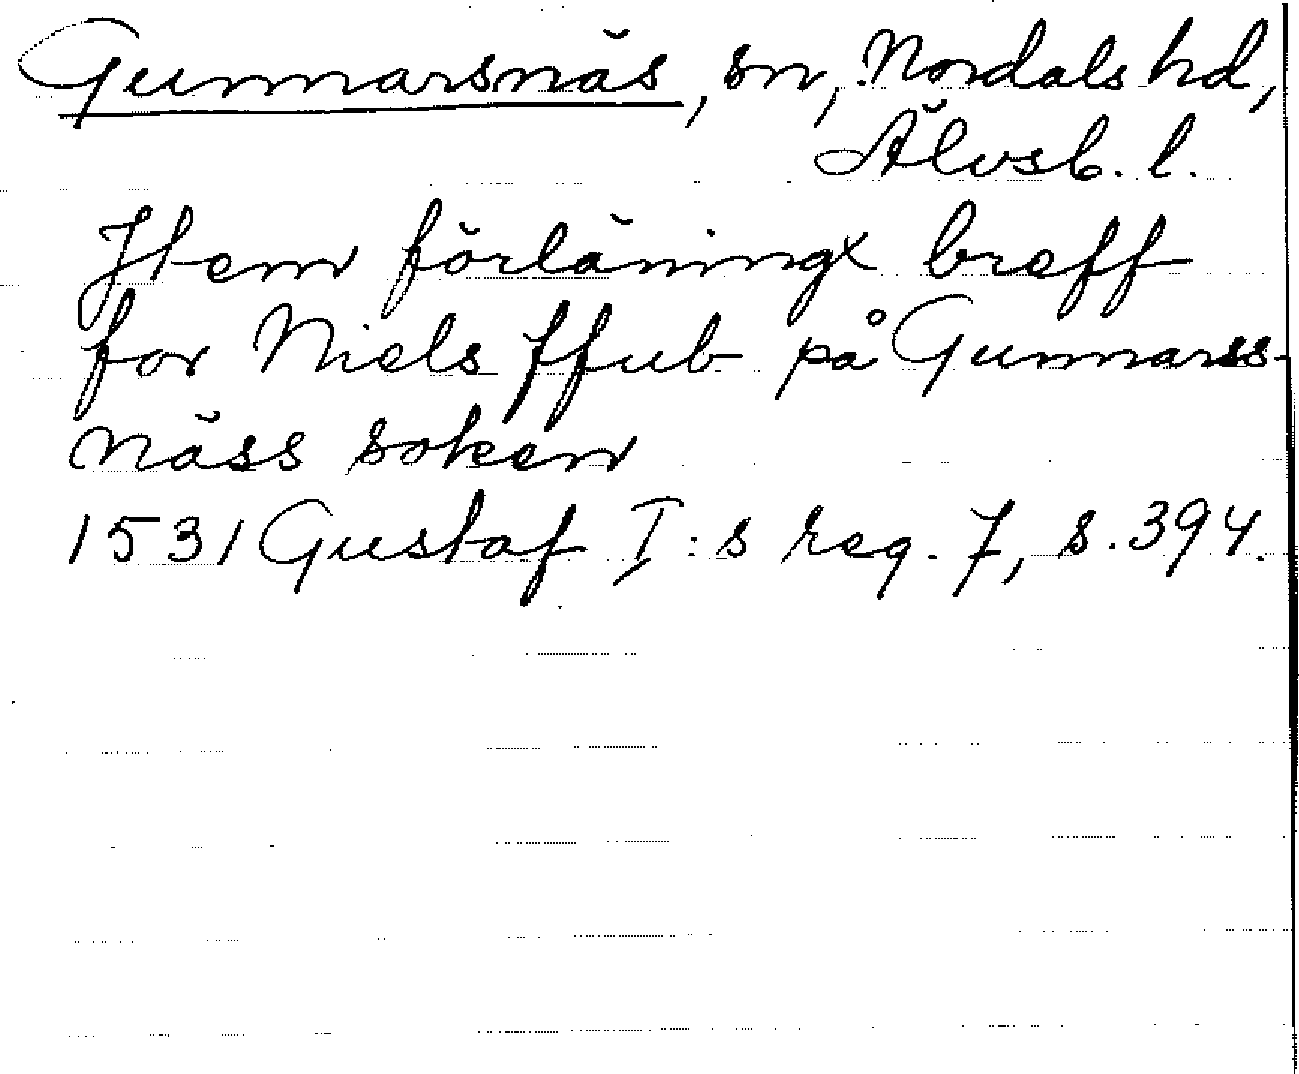 Gunnarsnäs, sn, Nordals hd,
Älvsb. l.
Jtem förläningx breff
for Niels ffub på Gunnarss-
näss soken
1531 Gustaf I:s reg. 7, s. 394.